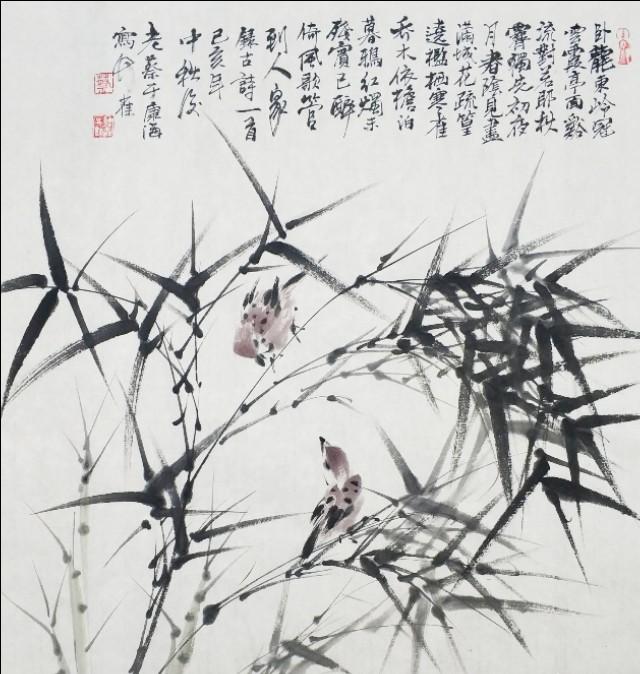 卧龍東岭冠
雲霞亭面谿
流對若耶秋
霽獨先初夜
月春陰見盡
滿城花疏篁
遶檻栖寒雀
喬木依檐泊
暮鵶紅燭未
殘賓已醉
倚風歌管
到人家
錄古詩一首
己亥年
中秋後
老蔡于廉海
寫竹雀